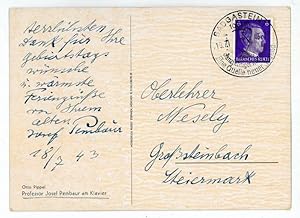 Herzlichsten
Dank für Ihre
Geburtstags
wünsche
u. wärmste
Feriengrüße
von Ihrem
alten
Josef Pembaur
18/7 43
Otto Pippel
Professor Josef Pembaur am Klavier
BADGASTEIN
6
Oberlehrer
Wesely
Großsteinbach
Steiermark